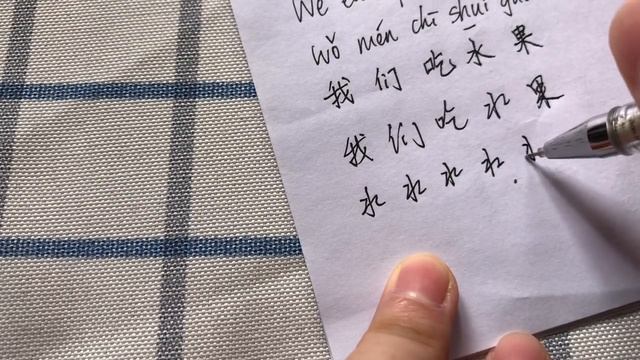 We
wǒ mén chī shuǐ
我们吃水果
我们吃水果
水水水水